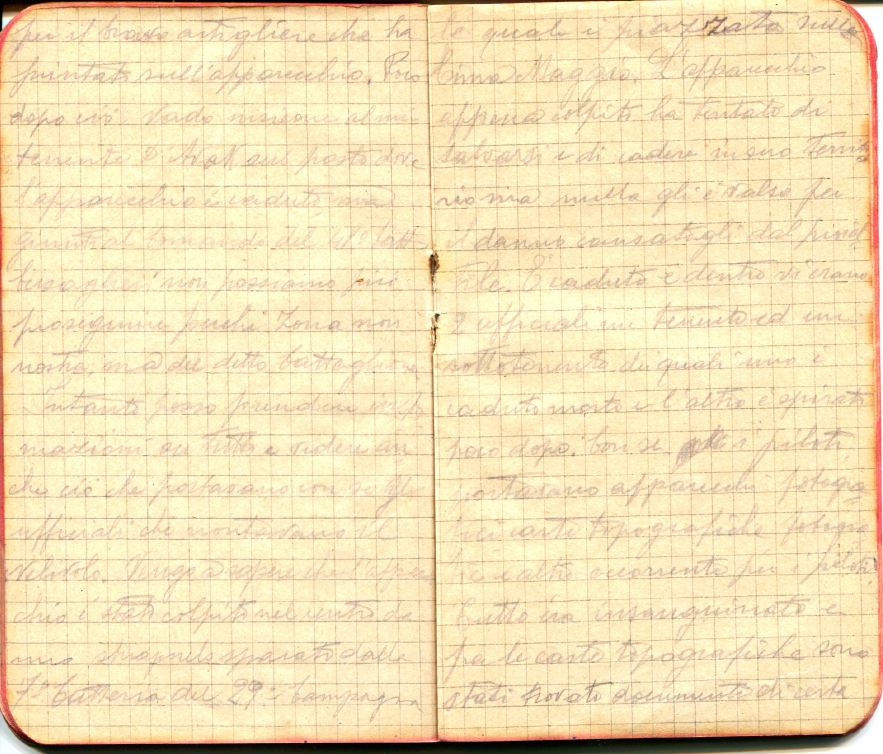 per il bravo artigliere che ha
puntato sull'apparecchio. Poco
dopo ciò vado insieme al mio
tenente sul posto dove
l'apparecchio è caduto ma
giunti al Comando del 41º batt
bersaglieri non possiamo più
proseguire perchè zona non
nostra, ma del detto battaglione
Intanto posso prendere infor
mazioni su tutto e vedere an
che ciò che portavano con se gli
ufficiali che montavano il
velivolo. Vengo a sapere che l'appare
chio è stato colpito nel centro da
uno shrapnels sparato dalla
7ª batteria del 29º Campagna
la quale è piazzata sulla
Cima Maggio. L'apparecchio
appena colpito ha tentato di
salvarsi e di cadere in suo territo
rio ma nulla gli è valso per
il danno causatogli dal proiet
tile. E' caduto e dentro vi erano
2 ufficiali un tenente ed un
sottotenente dei quali uno è
caduto morto e l'altro è spirato
poco dopo. Con se i piloti
portavano apparecchi fotogra
fici carte topografiche fotogra
fie e altro occorrente per i piloti
Tutto era insanguinato e
fra le carte topografiche sono
stati trovato documenti di certa